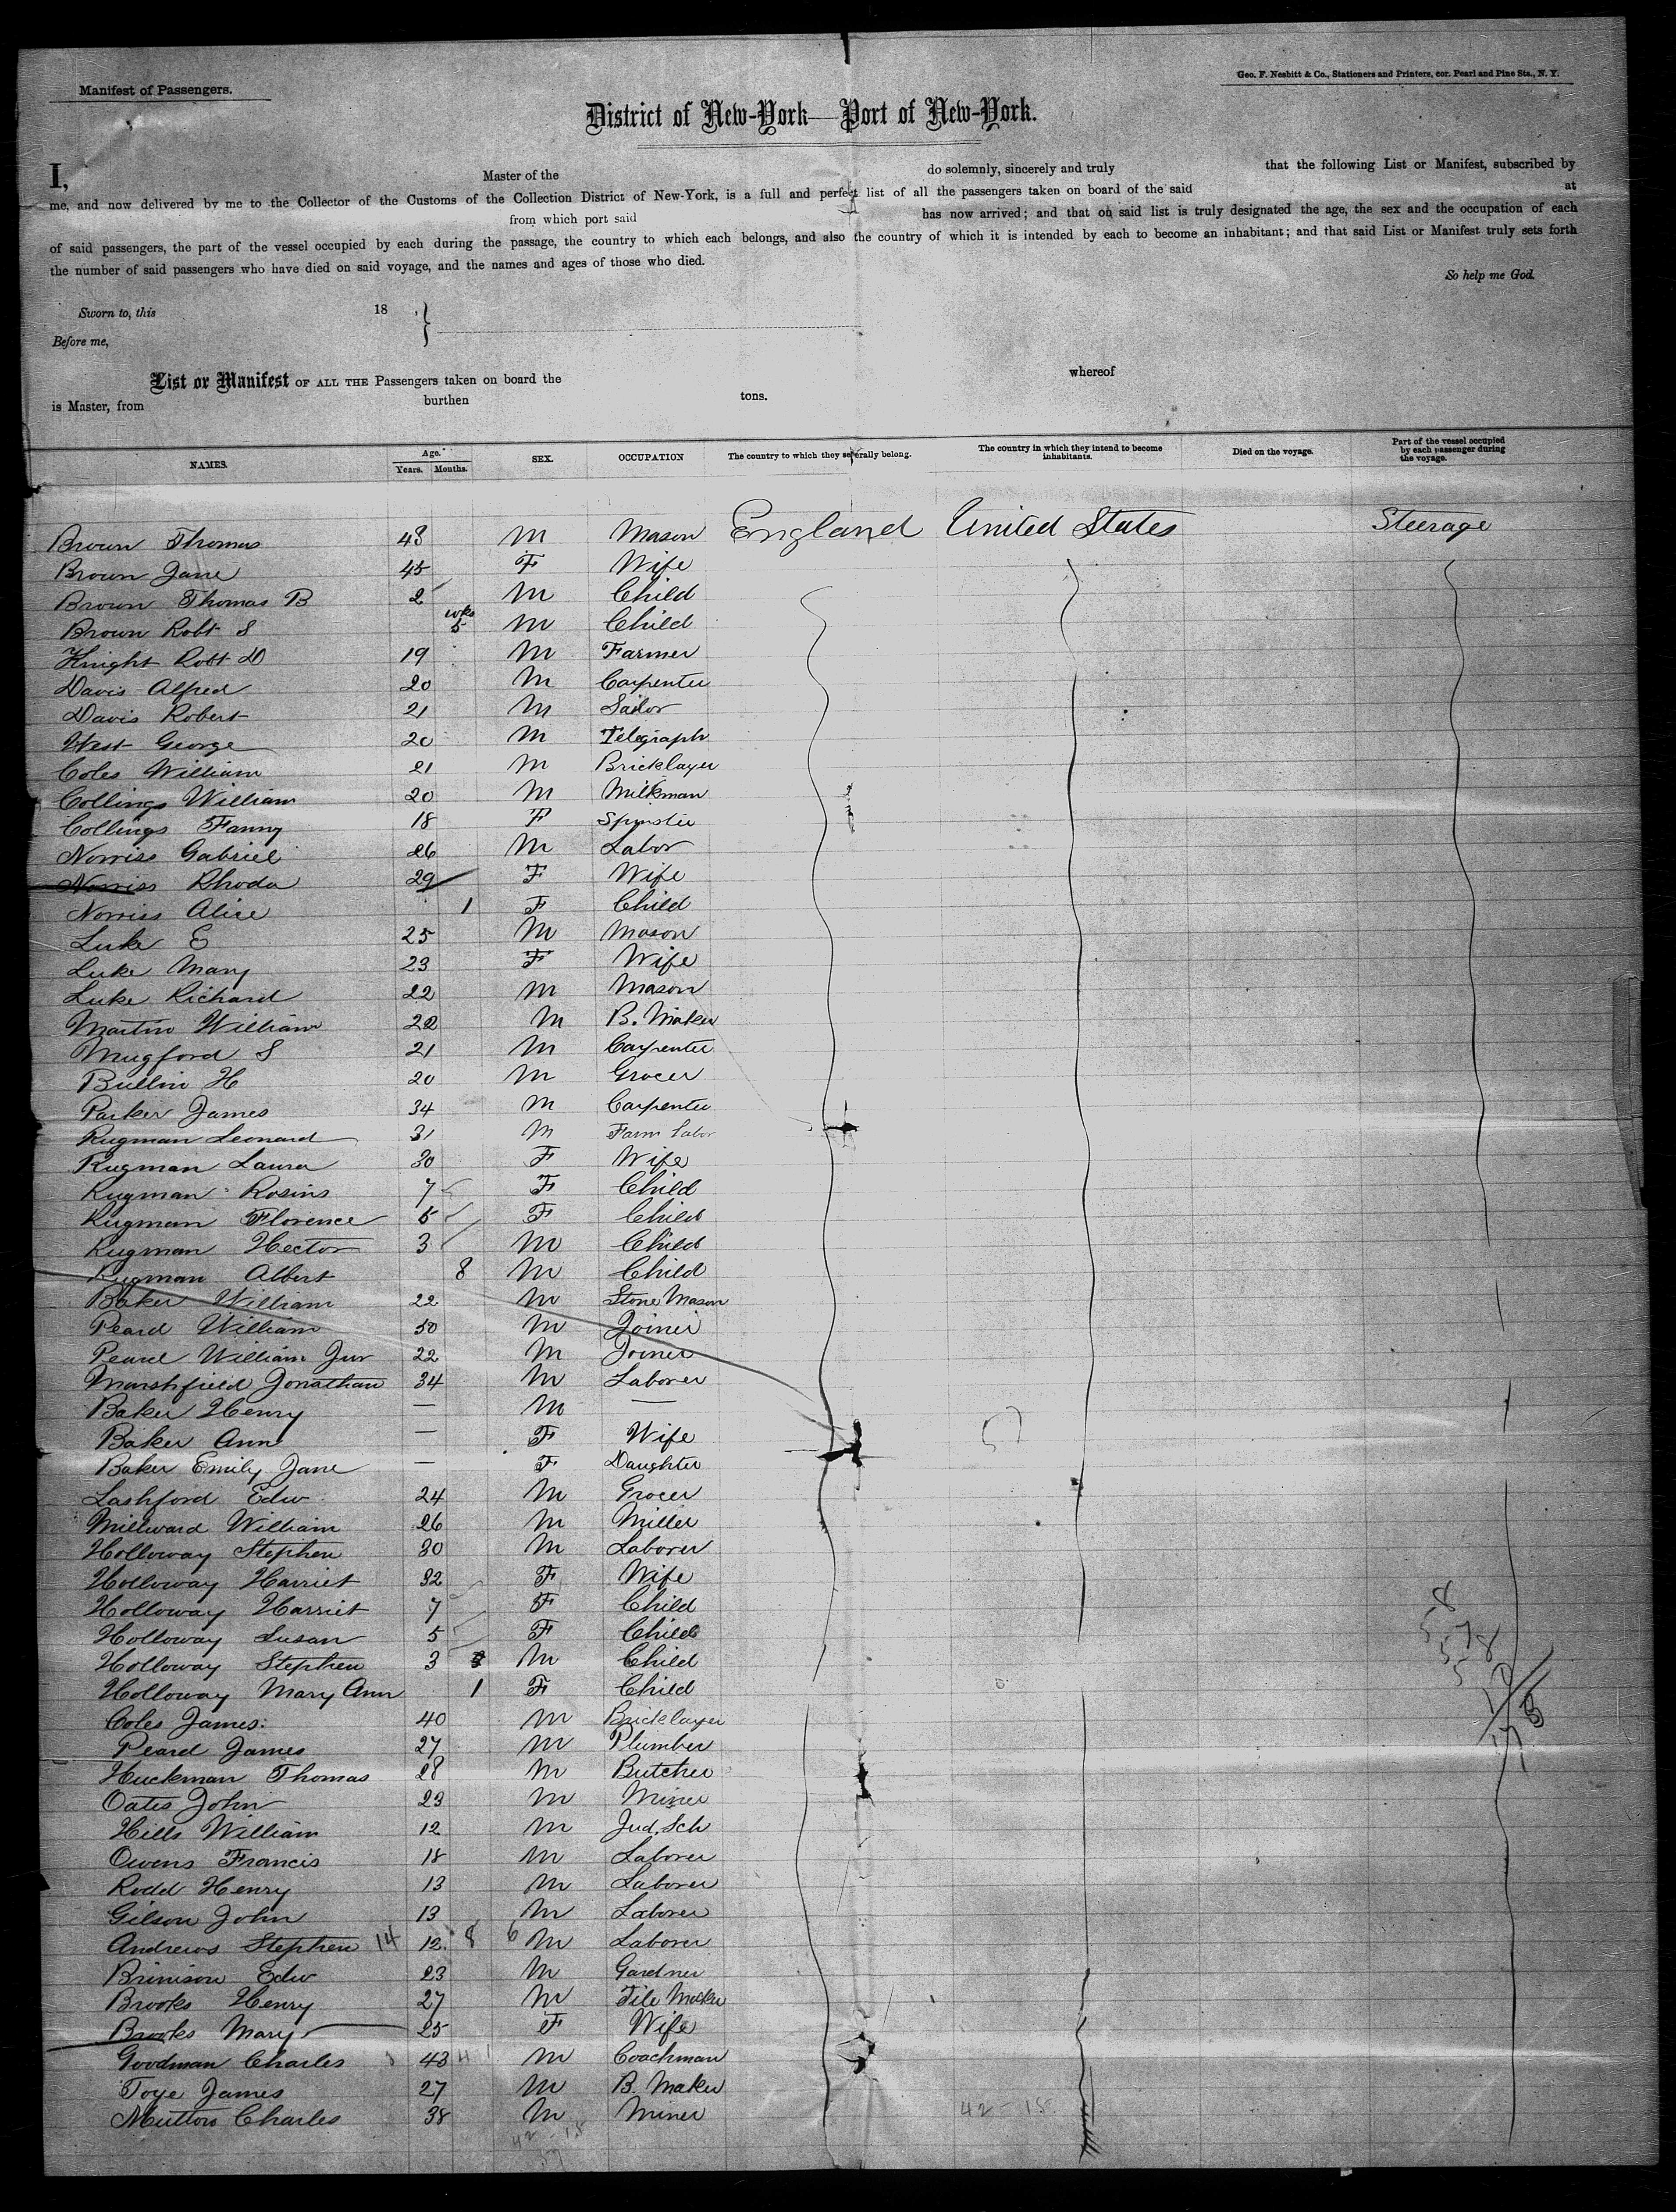 Manifest of Passengers.
Geo. F. Nesbitt & Co., Stationers and Printers, cor. Pearl and Pine Sts., N. Y.
District of New-York—Port of New-York.
I, Master of the do solemnly, sincerely and truly that the following List or Manifest, subscribed by
me, and now delivered by me to the Collector of the Customs of the Collection District of New-York, is a full and perfect list of all the passengers taken on board of the said at
from which port said has now arrived; and that on said list is truly designated the age, the sex and the occupation of each
of said passengers, the part of the vessel occupied by each during the passage, the country to which each belongs, and also the country of which it is intended by each to become an inhabitant; and that said List or Manifest truly sets forth
the number of said passengers who have died on said voyage, and the names and ages of those who died.
So help me God.
Sworn to, this 18 ,
Before me,
List or Manifest OF ALL THE Passengers taken on board the whereof
is Master, from burthen tons.
NAMES. Age. Years. Months. SEX. OCCUPATION The country to which they severally belong. The country in which they intend to become inhabitants. Died on the voyage. Part of the vessel occupied by each passenger during the voyage.
Brown Thomas 48 M Mason England United States Steerage
Brown Jane 45 F Wife
Brown Thomas B 2 M Child
Brown Robt S wks 5 M Child
Knight Robt D 19 M Farmer
Davis Alfred 20 M Carpenter
Davis Robert 21 M Sailor
West George 20 M Telegraph
Coles William 21 M Bricklayer
Collings William 20 M Milkman
Collings Fanny 18 F Spinster
Norriss Gabriel 26 M Labor
Norriss Rhoda 29 F Wife
Norriss Alice 1 F Child
Luke E 25 M Mason
Luke Mary 23 F Wife
Luke Richard 22 M Mason
Martin William 22 M B. Maker
Mugford S 21 M Carpenter
Bullin H 20 M Grocer
Parker James 34 M Carpenter
Rugman Leonard 31 M Farm Labor
Rugman Laura 30 F Wife
Rugman Rosins 7 F Child
Rugman Florence 5 F Child
Rugman Hector 3 M Child
Rugman Albert 8 M Child
Baker William 22 M Stone Mason
Peard William 50 M Joiner
Peard William Jur 22 M Joiner
Marshfield Jonathan 34 M Laborer
Baker Henry — M —
Baker Ann — F Wife
Baker Emily Jane — F Daughter
Lashford Edw 24 M Grocer
Millward William 26 M Miller
Holloway Stephen 30 M Laborer
Holloway Harriet 32 F Wife
Holloway Harriet 7 F Child
Holloway Susan 5 F Child
Holloway Stephen 3 M Child
Holloway Mary Ann 1 F Child
Coles James 40 M Bricklayer
Peard James 27 M Plumber
Huckman Thomas 28 M Butcher
Oates John 23 M Miner
Hills William 12 M Jud, Sch
Owens Francis 18 M Laborer
Rodd Henry 13 M Laborer
Gilson John 13 M Laborer
Andrews Stephen 14 12 8 6 M Laborer
Brinison Edw 23 M Gardner
Brooks Henry 27 M Tile Maker
Brooks Mary 25 F Wife
Goodman Charles 43 M Coachman
Toye James 27 M B. Maker
Mutton Charles 38 M Miner
42-15